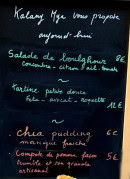 Kalany Mya vous propose
aujourd'hui
Salade de boulghour 8€
concombre - citron - ail - tomate
~
Tartine patate douce
feta - avocat - roquette 12€
~
. Chia pudding 6€
mangue fraîche
. Compote de pomme façon 5€
crumble et son granola
artisanal